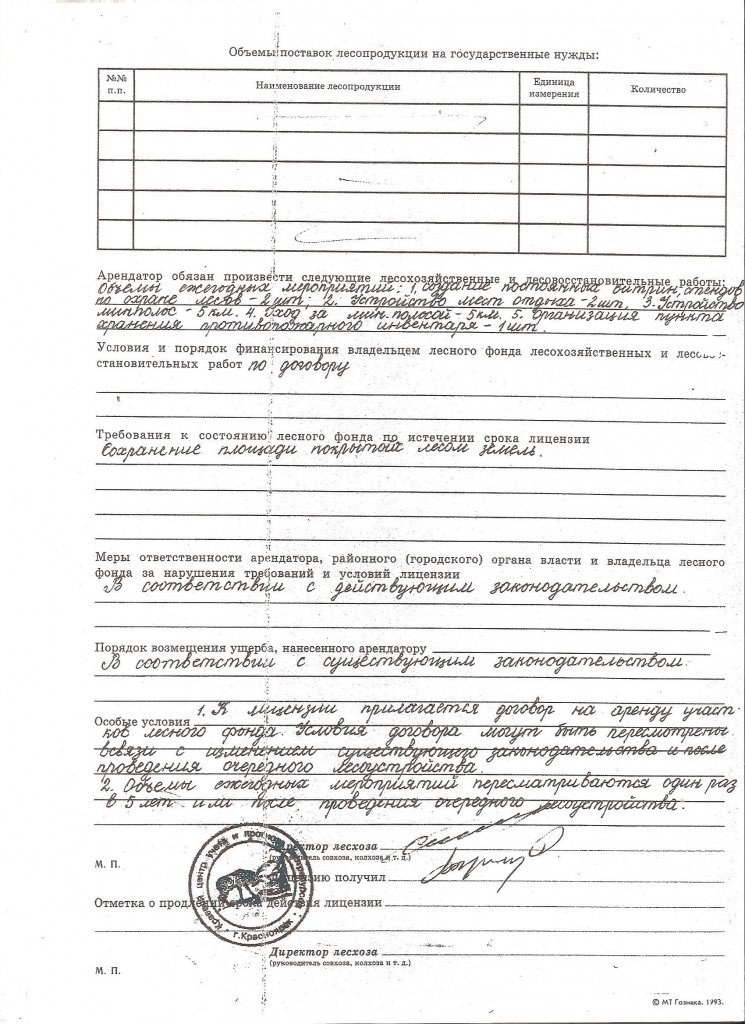 Объемы поставок лесопродукции на государственные нужды:
№№ п.п.
Наименование лесопродукции
Единица измерения
Количество
Арендатор обязан произвести следующие лесохозяйственные и лесовосстановительные работы:
Объемы ежегодных мероприятий: 1. создание постоянных витрин, стендов
по охране лесов - 2 шт; 2. Устройство мест отдыха - 2 шт. 3. Устройство
минполос - 5 км. 4. Уход за мин. полосой - 5 км. 5. Организация пункта
хранения противопожарного инвентаря - 1 шт.
Условия и порядок финансирования владельцем лесного фонда лесохозяйственных и лесовос-
становительных работ по договору
Требования к состоянию лесного фонда по истечении срока лицензии
Сохранение площади покрытой лесом земель.
Меры ответственности арендатора, районного (городского) органа власти и владельца лесного
фонда за нарушения требований и условий лицензии
В соответствии с действующим законодательством.
Порядок возмещения ущерба, нанесенного арендатору
В соответствии с существующим законодательством.
1. К лицензии прилагается договор на аренду участ-
Особые условия
ков лесного фонда. Условия договора могут быть пересмотрены
всвязи с изменением существующего законодательства и после
проведения очередного лесоустройства.
2. Объемы ежегодных мероприятий пересматриваются один раз
в 5 лет или после проведения очередного лесоустройства.
Директор лесхоза
(руководитель совхоза, колхоза и т. д.)
М. П.
Лицензию получил
Отметка о продлении срока действия лицензии
г. Красноярск
Директор лесхоза
(руководитель совхоза, колхоза и т. д.)
М. П.
© МТ Гознака. 1993.